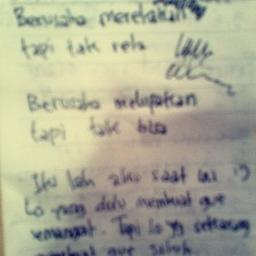 Berusaha merelakan
tapi tak rela
Berusaha melupakan
tapi tak bisa
Itu lah aku saat ini :')
Lo yang dulu membuat gue
semangat. Tapi lo yg sekarang
membuat gue